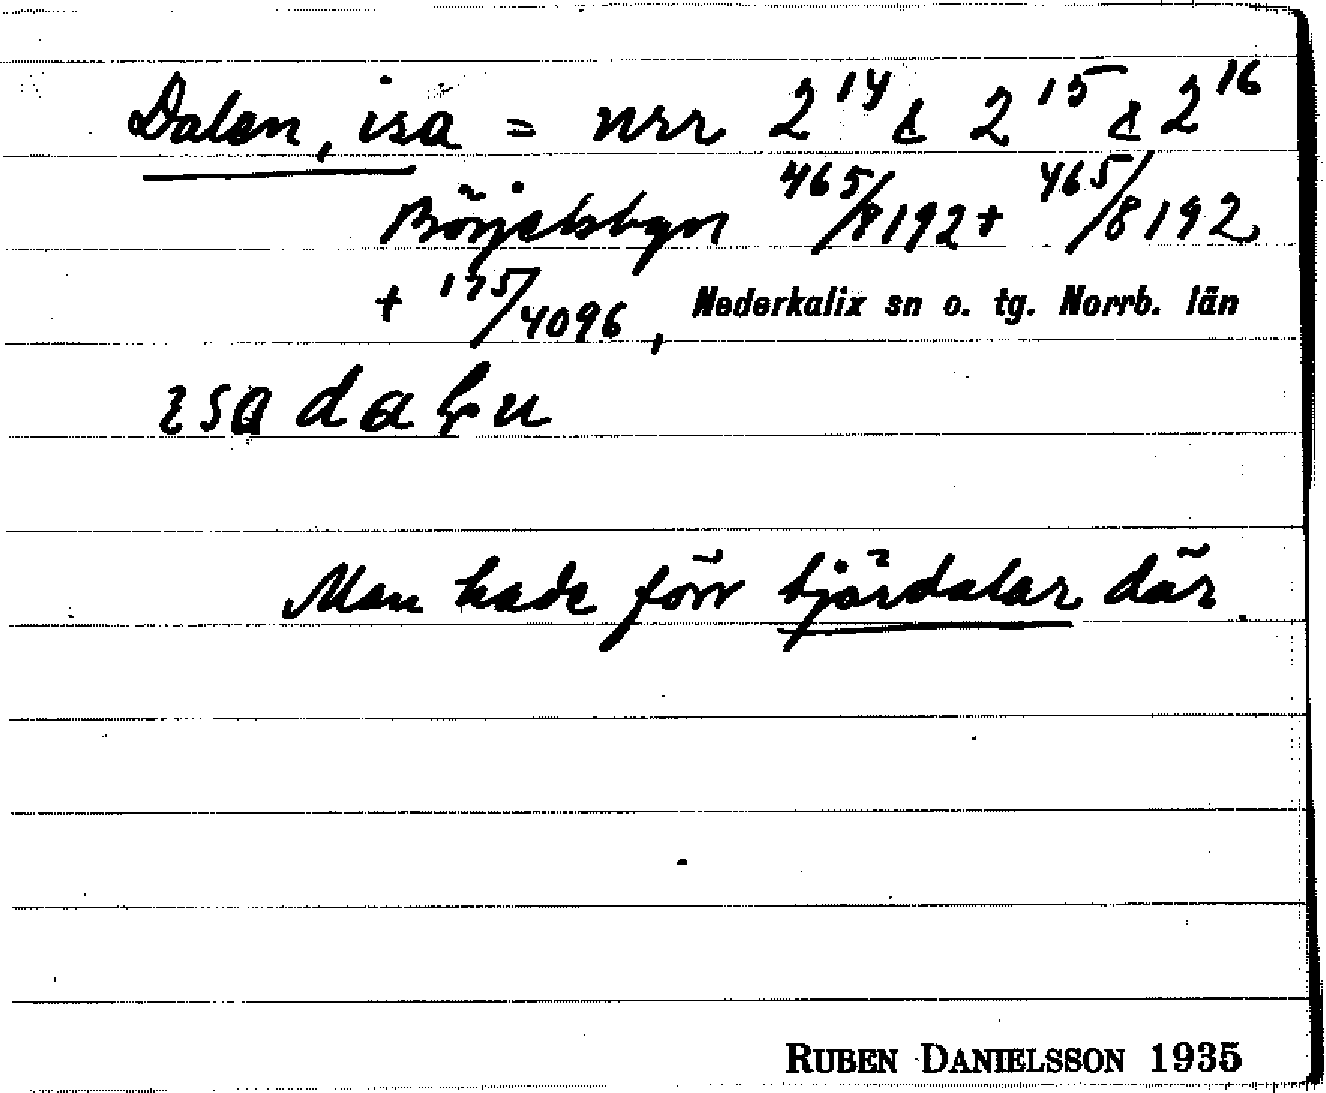 Dalen, isa = nrr 2¹⁴ & 2¹⁵ & 2¹⁶
Börjelsbyn 465/8192 + 465/8192
+ 175/4096, Nederkalix sn o. tg. Norrb. län
isa
Man hade förr tjärdalar där.
RUBEN DANIELSSON 1935